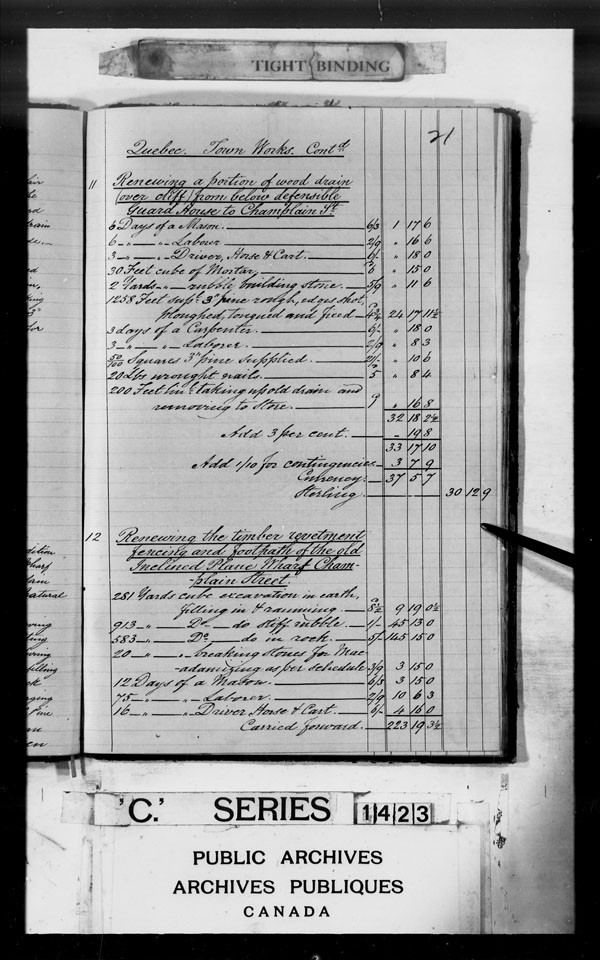 TIGHT BINDING
21
Quebec. Town Works. Contd
11 Renewing a portion of wood drain
(over cliff) from below defensible
Guard House to Champlain St.
6 Days of a Mason. 6/3 1 17 6
6 " " Laborer 2/9 " 16 6
3 " " Driver, Horse & Cart. 6/- " 18 0
30 Feet cube of Mortar, 6 " 15 0
2 Yards " rubble building stone. 5/9 " 11 6
1258 Feet supl. 3" pine rough, edges shot,
ploughed, tongued and fixed 4¾ 24 17 11½
3 days of a Carpenter. 6/- " 18 0
3 " " Laborer. 2/9 " 8 3
50/100 Squares 3" pine supplied. 21/- " 10 6
20 Lbs wrought nails. 5 " 8 4
200 Feet linl. taking up old drain and
removing to Store. " 16 8
32 18 2½
Add 3 per cent. " 19 8
33 17 10
Add 1/10 for contingencies 3 7 9
Currency. 37 5 7
Sterling 30 12 9
12 Renewing the timber revetment
fencing and footpath of the old
Inclined Plane Wharf Cham-
-plain Street
281 Yards cube excavation in earth,
filling in & ramming. 8½ 9 19 0½
913 " Do do stiff rubble. 1/- 45 13 0
583 " Do do in rock. 5/- 145 15 0
20 " breaking stones for Mac-
-adamizing as per schedule 3/9 3 15 0
12 Days of a Mason. 6/3 3 15 0
75 " " Laborer. 2/9 10 6 3
16 " " Driver Horse & Cart. 6/- 4 16 0
Carried forward. 223 19 3½
'C.' SERIES 1423
PUBLIC ARCHIVES
ARCHIVES PUBLIQUES
CANADA